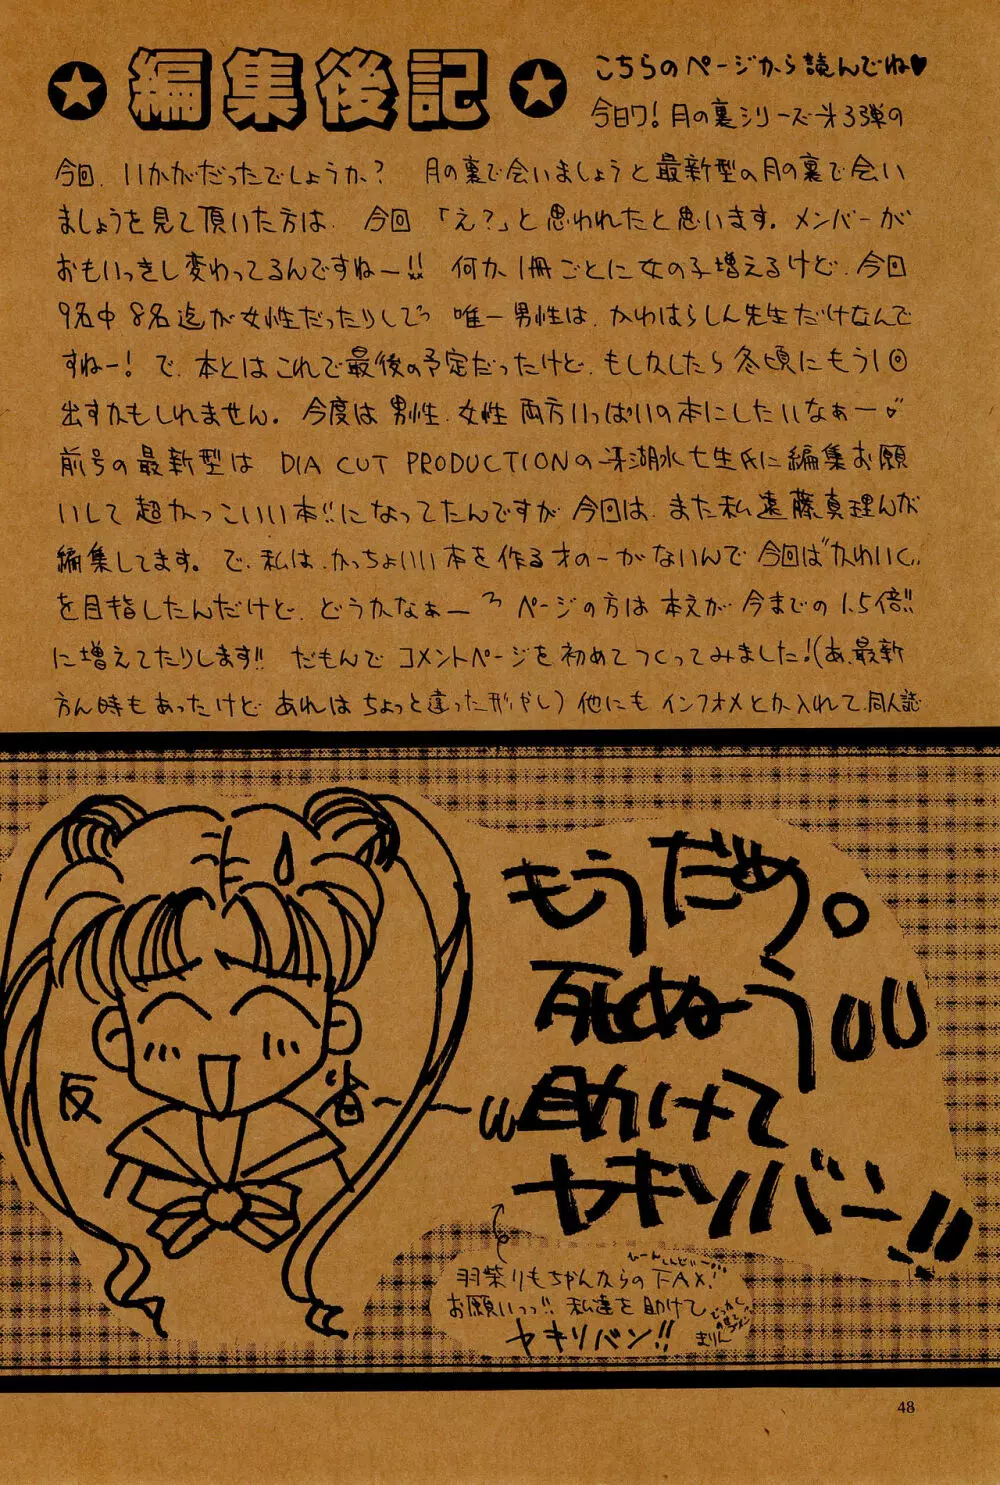 編集後記
こちらのページから読んでね♥
今日ワ!月の裏シリーズ㐧3弾の
今回、いかがだったでしょうか?月の裏で会いましょうと最新型の月の裏で会い
ましょうを見て頂いた方は、今回「え?」と思われたと思います。メンバーが
おもいっきし変わってるんですねー!!何か1冊ごとに女の子増えるけど、今回
9名中8名迄が女性だったりしてっ 唯一男性は、かわはらしん先生だけなんで
すねー!で、本とはこれで最後の予定だったけど、もしかしたら冬頃にもう1回
出すかもしれません。今度は男性、女性両方いっぱいの本にしたいなぁー
前号の最新型は DIA CUT PRODUCTIONの 湖水七生氏に編集お願
いして超かっこいい本!!になってたんですが今回は、また私遠藤真理んが
編集してます。で、私は、かっちょいい本を作る才のーがないんで今回は"かわいく"
を目指したんだけど、どうかなぁー ページの方は本文が今までの1.5倍!!
に増えてたりします!!だもんでコメントページを初めてつくってみました!(あ、最新
方ん時もあったけどあれはちょっと違った形やし)他にもインフォメとか入れて、同人誌
もうだめ。
死ぬぅ
助けて
ヤキソバーン!!
反
省～～
羽柴りもちゃんからのFAX!
お願いっっ!!私達を助けて
ヤキソバン!!
まりん
48